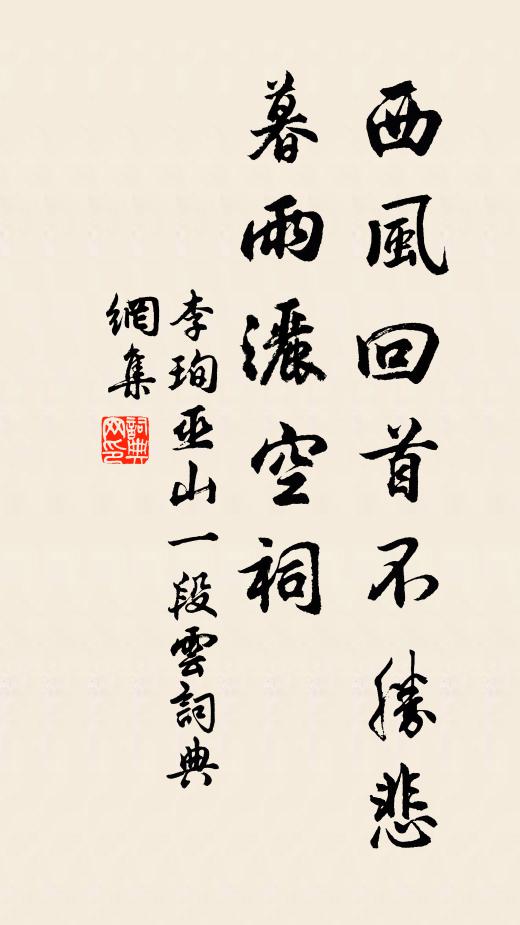 西風回首不勝悲
暮雨灑空祠
李珣巫山一段雲詞典
網集
詞典
网印